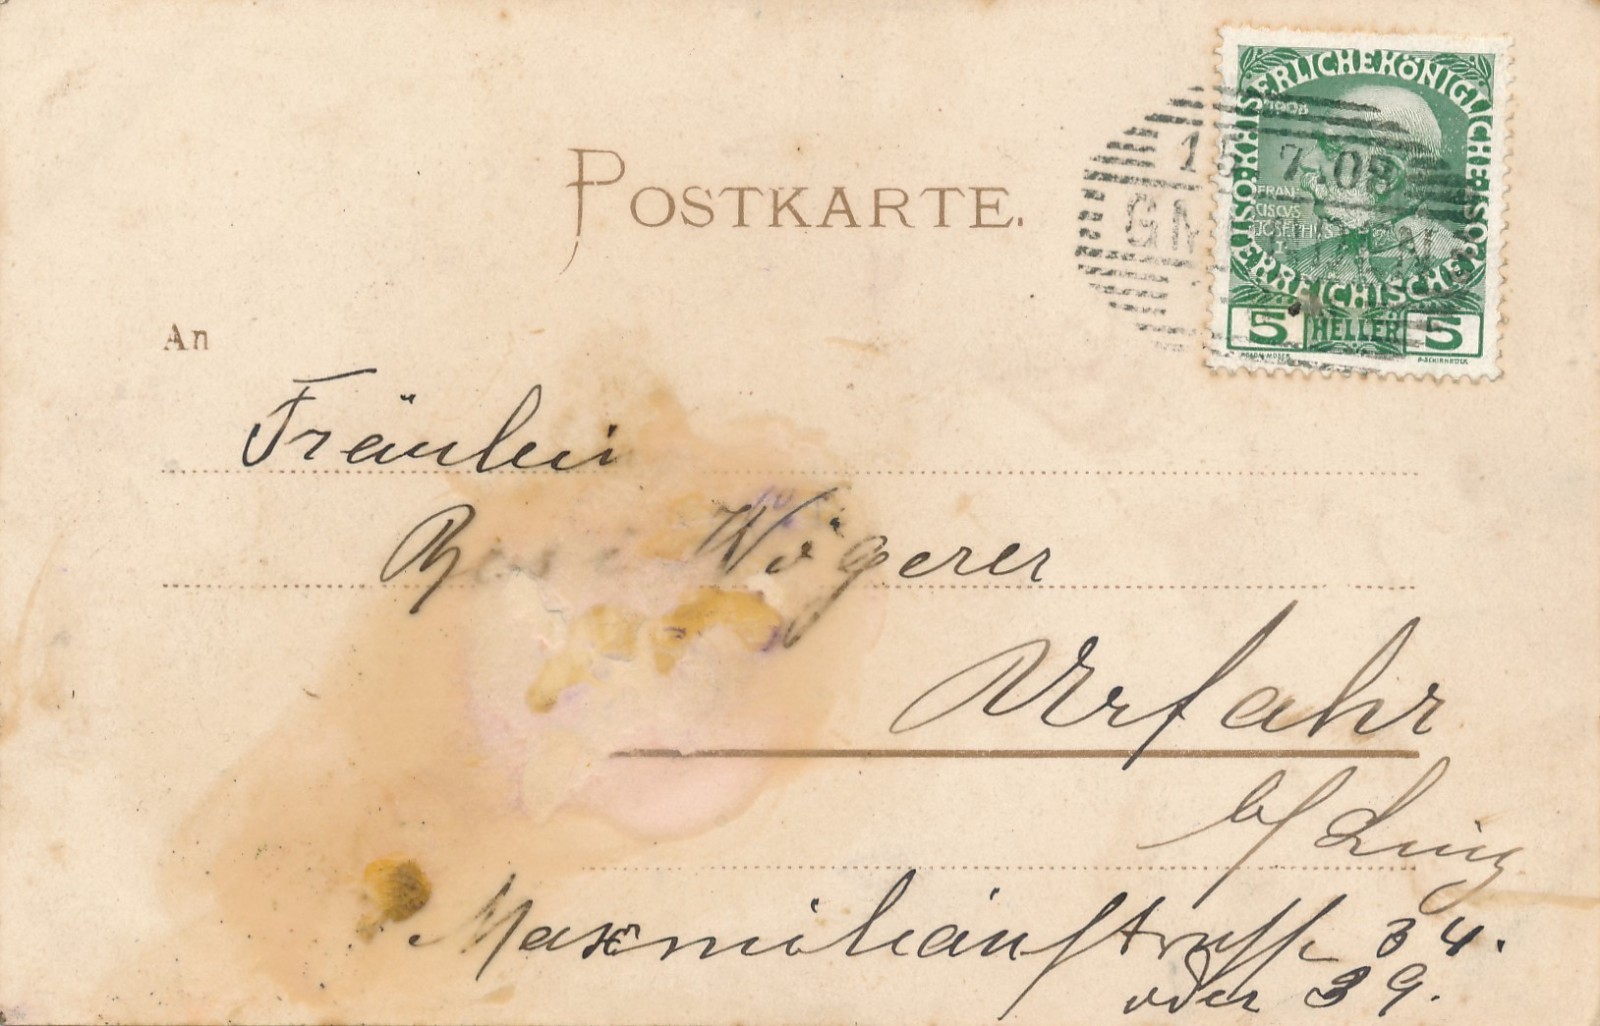 POSTKARTE.
KAISERLICHEKÖNIGLICHE
ÖSTERREICHISCHE
1908
FRAN
CISCVS
JOSEPHVS
I
5 HELLER 5
15 7 08
An
Fräulein
Wögerer
Urfahr
b/Linz
Maximilianstrasse 34.
oder 39.